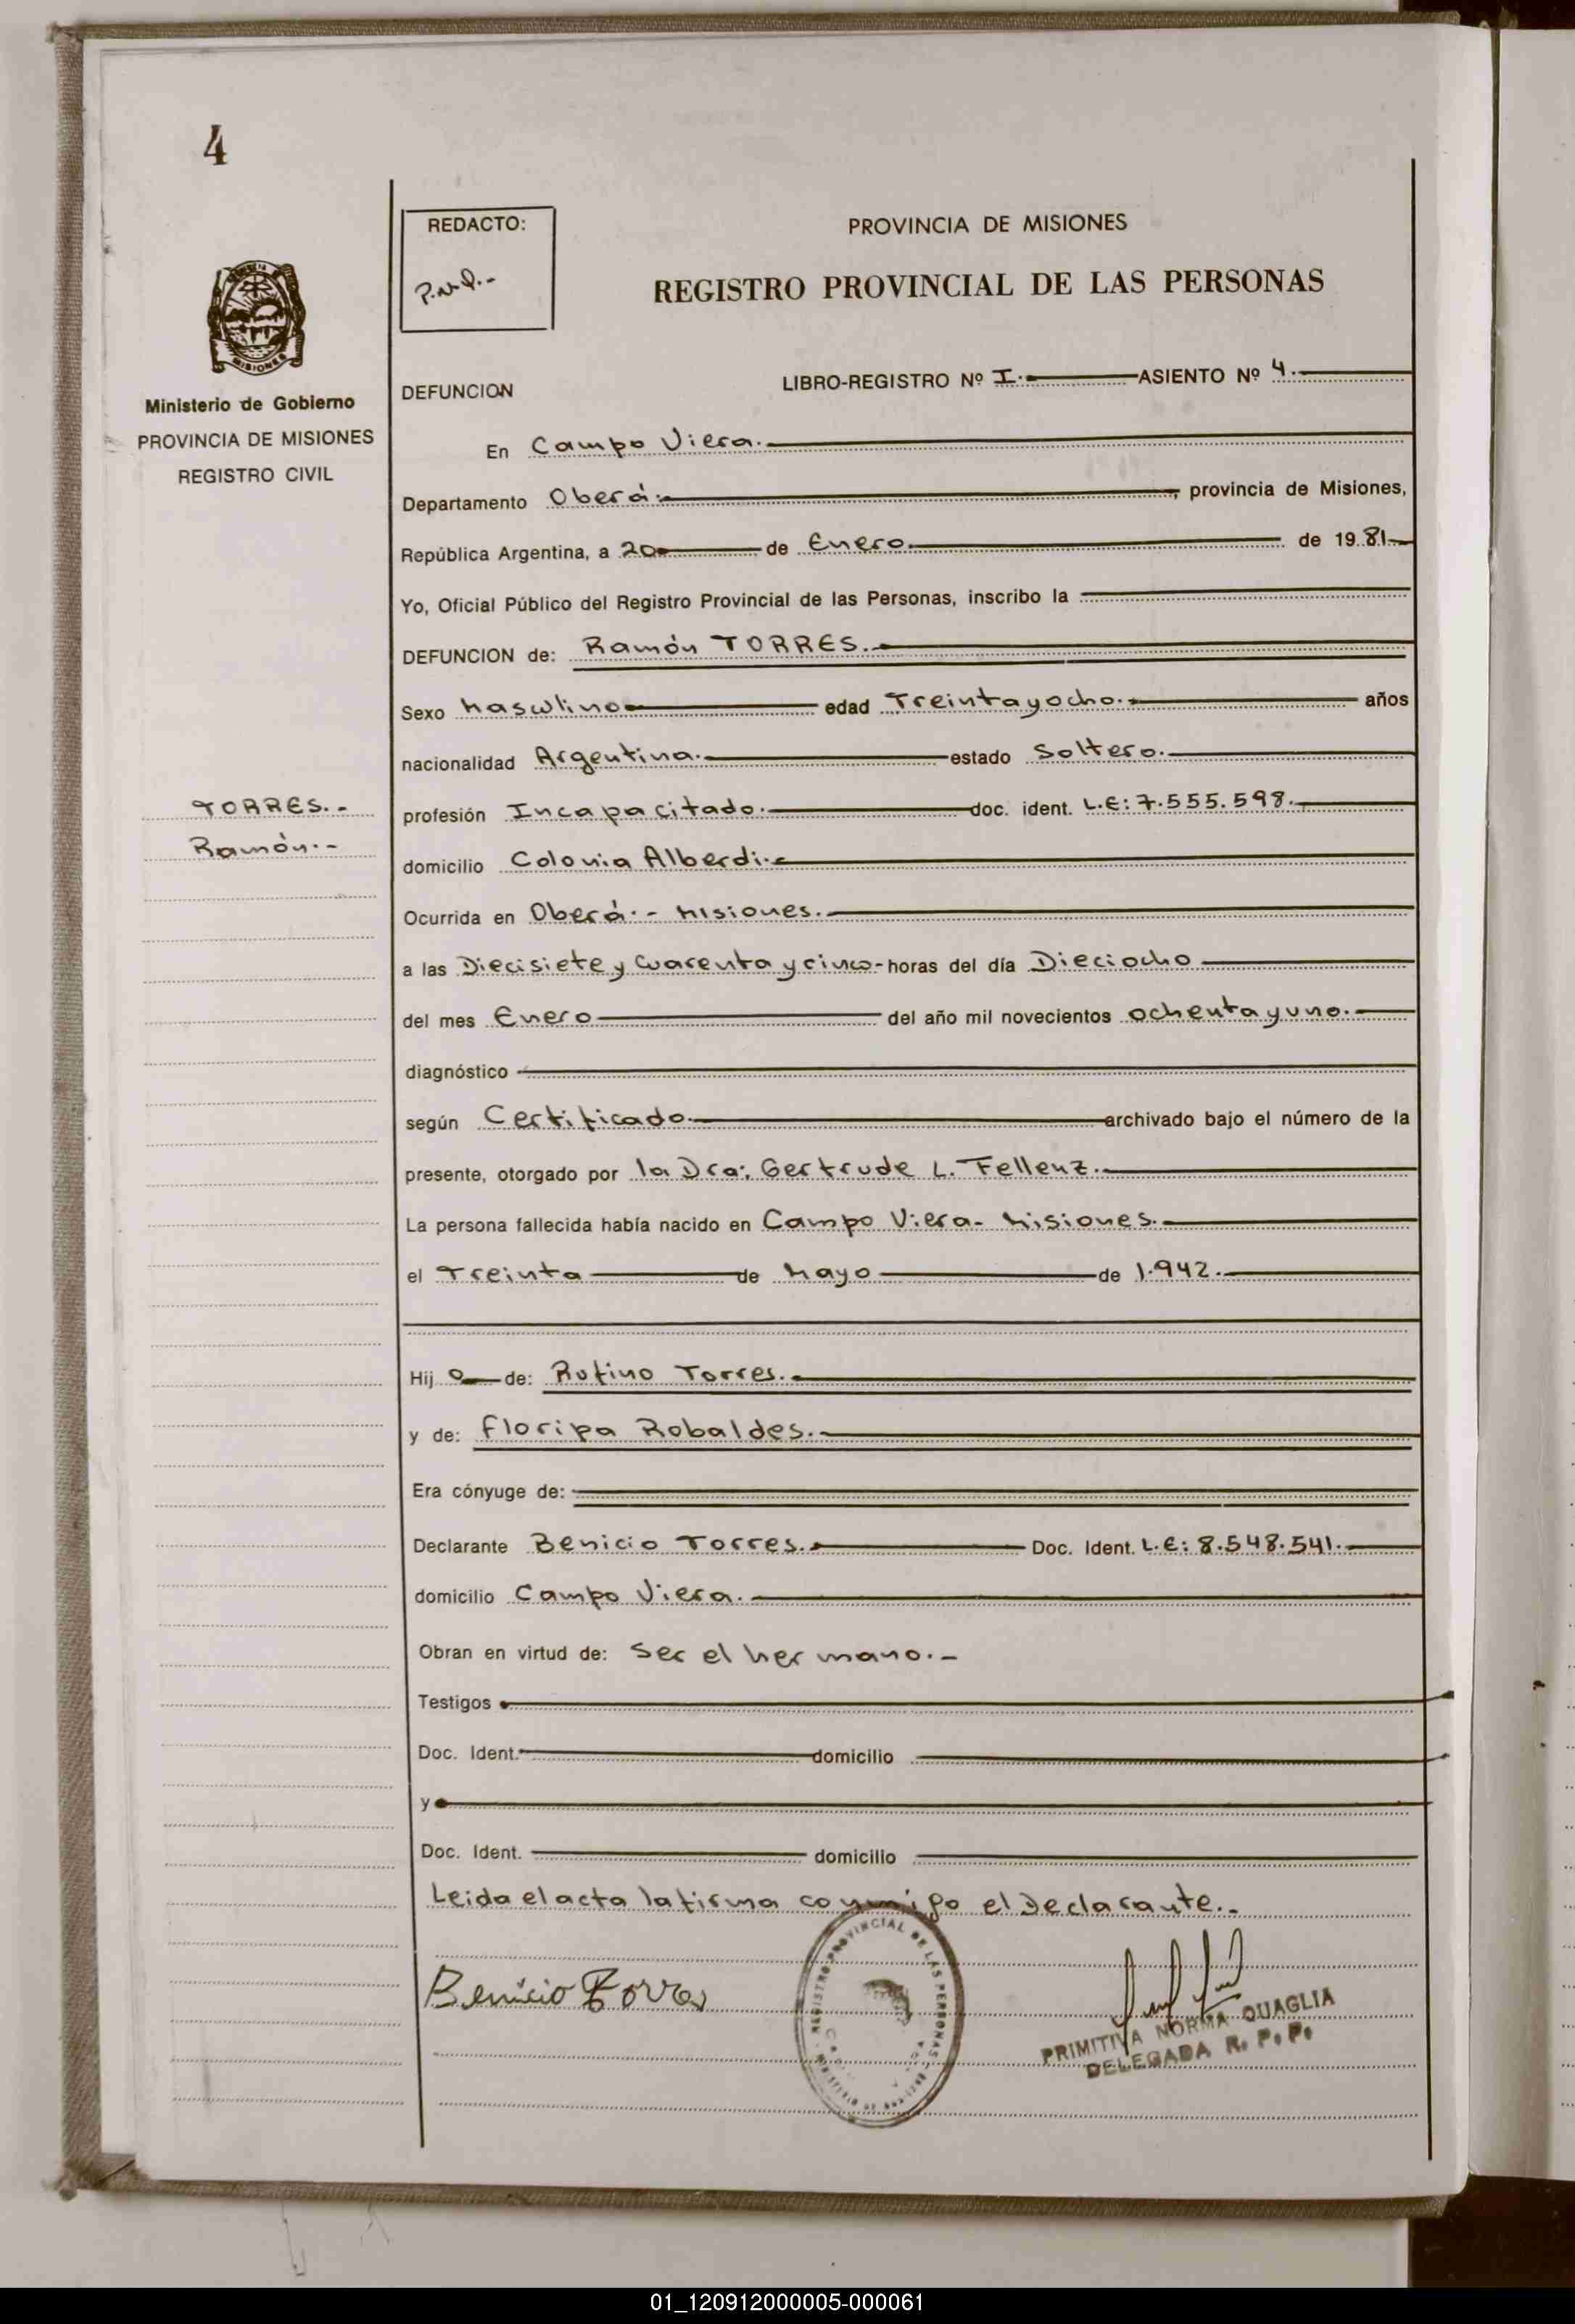 4
REDACTO:
PROVINCIA DE MISIONES
REGISTRO PROVINCIAL DE LAS PERSONAS
MISIONES
Ministerio de Gobierno
PROVINCIA DE MISIONES
REGISTRO CIVIL
DEFUNCION
LIBRO-REGISTRO Nº I.- ASIENTO Nº 4.-
En Campo Viera.-
Departamento Oberá.- , provincia de Misiones,
República Argentina, a 20 de Enero. de 19 81-
Yo, Oficial Público del Registro Provincial de las Personas, inscribo la
DEFUNCION de: Ramón TORRES.-
Sexo Masculino edad Treinta y ocho.- años
nacionalidad Argentina.- estado Soltero.-
TORRES.-
Ramón.-
profesión Incapacitado.- doc. ident. L.E: 7.555.598.-
domicilio Colonia Alberdi.-
Ocurrida en Oberá.- Misiones.-
a las Diecisiete y Cuarenta y cinco- horas del día Dieciocho
del mes Enero del año mil novecientos ochenta y uno.-
diagnóstico
según Certificado.- archivado bajo el número de la
presente, otorgado por la Dra: Gertrude L. Fellenz.-
La persona fallecida había nacido en Campo Viera- Misiones.-
el Treinta de Mayo de 1.942.-
Hij o de: Rufino Torres.-
y de: Floripa Robaldes.-
Era cónyuge de:
Declarante Benicio Torres.- Doc. Ident. L.E: 8.548.541.-
domicilio Campo Viera.-
Obran en virtud de: Ser el hermano.-
Testigos
Doc. Ident. domicilio
y
Doc. Ident. domicilio
Leida el acta la firma conmigo el Declarante.-
Benicio Torres
REGISTRO PROVINCIAL DE LAS PERSONAS
PRIMITIVA NORMA QUAGLIA
DELEGADA R. P. P.
01_120912000005-000061